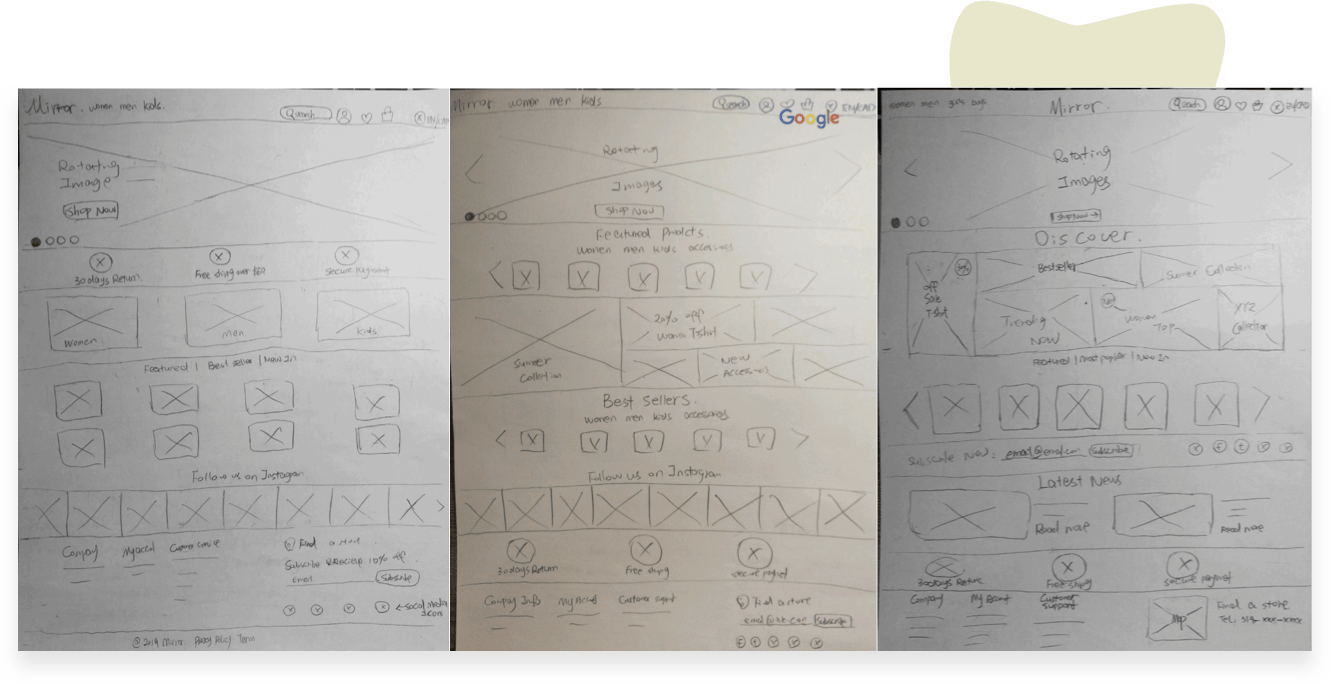 Mirror. women men kids.
Search
Rotating
Image
Shop Now
30 days Return
Free shipping over
secure Payment
women
men
kids
Featured | Best seller | New In
Follow us on Instagram
Company My account Customer service
Find a store
Subscribe & Receive 10% off
email Subscribe
social media icons
© 2019 Mirror. Privacy Policy Terms
Mirror women men kids
Search
Google
Rotating
Images
Shop Now
Featured Products.
women men kids accessories
20% off
Women T-shirt
Summer
Collection
New
Accessories
Best Sellers.
women men kids accessories
Follow us on Instagram
30 days Return
free shipping
secure payment
Company Info My Account Customer support
Find a store
Subscribe
women men girls boys
Mirror.
Search
Rotating
Images
Shop Now →
Discover.
off
Sale
T-shirt
Best seller
Summer Collection
Trending
NOW
Women
Top
XYZ
Collection
Featured | most popular | New In
Subscribe Now: email@email.com Subscribe
Latest News
Read more
Read more
30 days Return
Free shipping
secure payment
Company My Account Customer
support
Map
Find a store